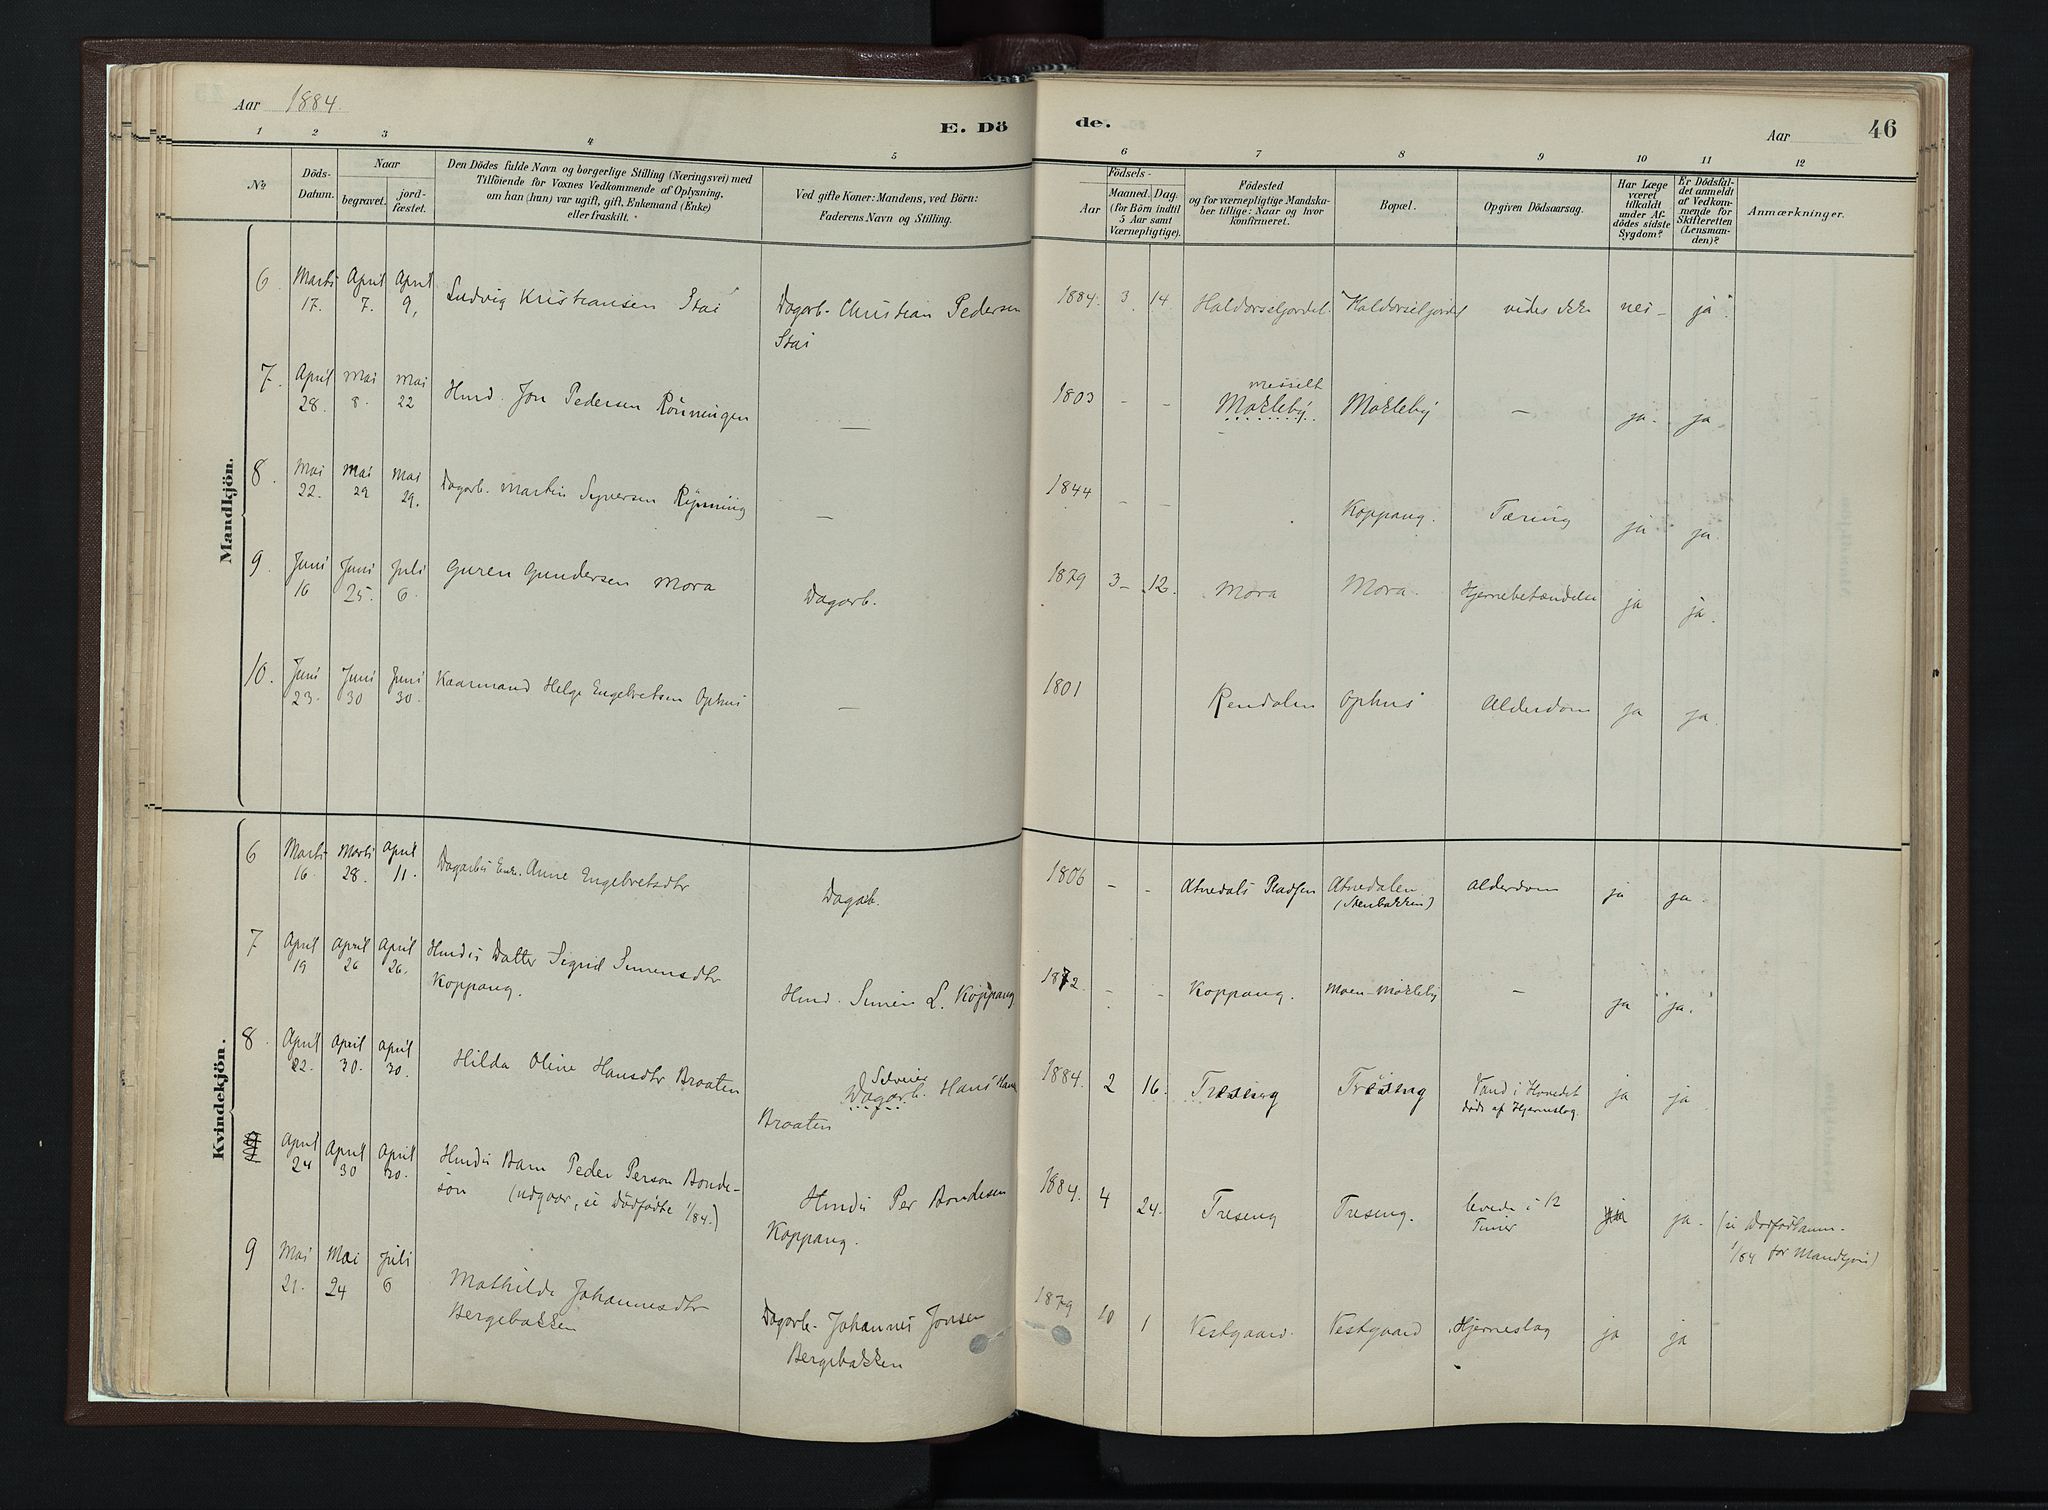 Aar 1884.
E. Dö
de.
Aar
46
1 2 3 4 5 6 7 8 9 10 11 12
No
Döds-
Datum.
Naar
begravet.
jord-
fæstet.
Den Dödes fulde Navn og borgerlige Stilling (Næringsvei) med
Tilföiende for Voxnes Vedkommende af Oplysning,
om han (hun) var ugift, gift, Enkemand (Enke)
eller fraskilt.
Ved gifte Koner: Mandens, ved Börn:
Faderens Navn og Stilling.
Födsels-
Aar
Maaned. Dag.
(for Börn indtil
5 Aar samt
Værnepligtige).
Födested
og for værnepligtige Mandska-
ber tillige: Naar og hvor
konfirmeret.
Bopæl.
Opgiven Dödsaarsag.
Har Læge
været
tilkaldt
under Af-
dödes sidste
Sygdom?
Er Dödsfal-
det anmeldt
af Vedkom-
mende for
Skifteretten
(Lensman-
den)?
Anmærkninger.
Mandkjön.
6 Marts 17. April 7. April 9, Ludvig Kristiansen Stai Dagarb. Christian Pedersen
Stai
1884. 3 14 Haldorseljordet. Haldorseljordet vides ikke nei ja
7. April 28. Mai 8. Mai 22 Hmd. Jon Pedersen Rönningen —
1803 - - Messelt
Mokleby. Mokleby — ja. ja
8. Mai 22. Mai 29 Mai 29. Dagarb. Martin Syversen Rönning —
1844 - - Koppang. Tæring ja ja.
9. Juni 16 Juni 25. Juli 6. Guren Gundersen Mora Dagarb.
1879 3 12. Mora Mora Hjernebetændelse ja ja.
10. Juni 23. Juni 30 Juni 30. Kaarmand Helge Engebretsen Ophus —
1801 Rendalen Ophus Alderdom ja ja.
Kvindekjön.
6 Marts 16. Marts 28. April 11. Dagarbs Enke. Anne Engebretsdtr Dagarb.
1806 - - Atnedals Pladsen Atnedalen
(Stenbakken) Alderdom ja ja.
7 April 19 April 26 April 26. Hmds Datter Sigrid Simensdtr
Koppang. Hmd. Simen L. Koppang
1872. - - Koppang. Moen-Mokleby — ja ja.
8. April 22. April 30. April 30. Hilda Oline Hansdtr Braaten Selveier
Dagarb. Hans Hans
Braaten
1884. 2 16. Treseng Treseng Vand i Hovedet
döde af Hjerneslag. ja ja
9 April 24 April 30 April 30. Hmds Barn Peder Person Bonde-
son (udgaar, se Dödfödte 1/84.) Hmds Per Bondesen
Koppang.
1884. 4 24. Treseng Treseng. levede i 12
Timer ja ja. (se Dödfödte
1/84 for Mandkjön)
9 Mai 21. Mai 24 Juli 6 Mathilde Johannesdtr
Bergebakken Dagarb. Johannes Jonsen
Bergebakken
1879 10 1 Vestgaard. Vestgaard Hjerneslag ja ja